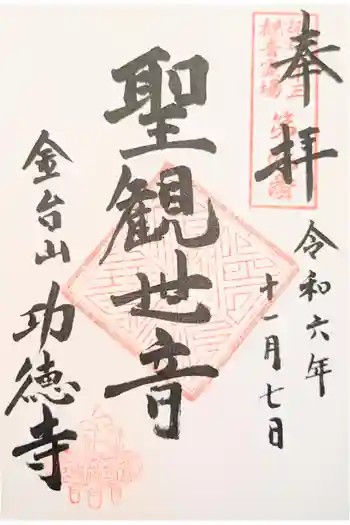 奉拝
令和六年
十一月七日
聖観世音
金台山
功徳寺